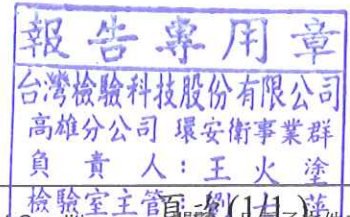 報告專用章
台灣檢驗科技股份有限公司
高雄分公司 環安衛事業群
負責人：王火塗
檢驗室主管：劉
頁次(1/1)